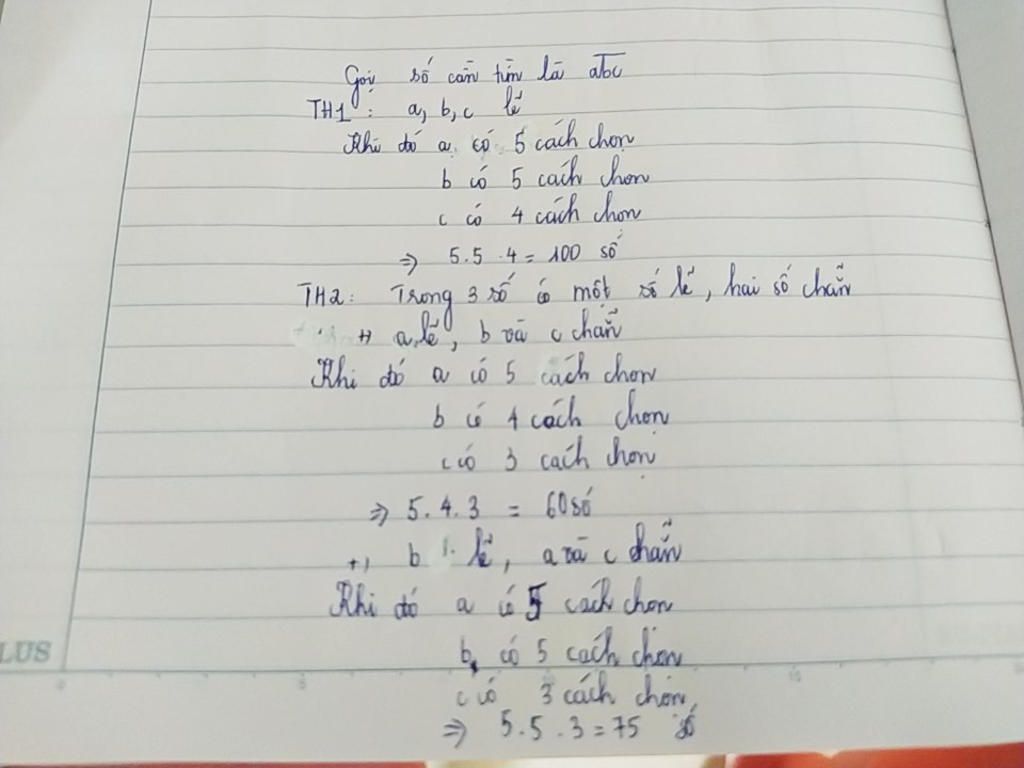 Gọi số cần tìm là abc
TH1: a, b, c lẻ
Khi đó a có 5 cách chọn
b có 5 cách chọn
c có 4 cách chọn
⇒ 5.5.4 = 100 số
TH2: Trong 3 số có một số lẻ, hai số chẵn
+) a lẻ, b và c chẵn
Khi đó a có 5 cách chọn
b có 4 cách chọn
c có 3 cách chọn
⇒ 5.4.3 = 60 số
+) b lẻ, a và c chẵn
Khi đó a có 5 cách chọn
b có 5 cách chọn
c có 3 cách chọn
LUS
⇒ 5.5.3 = 75 số